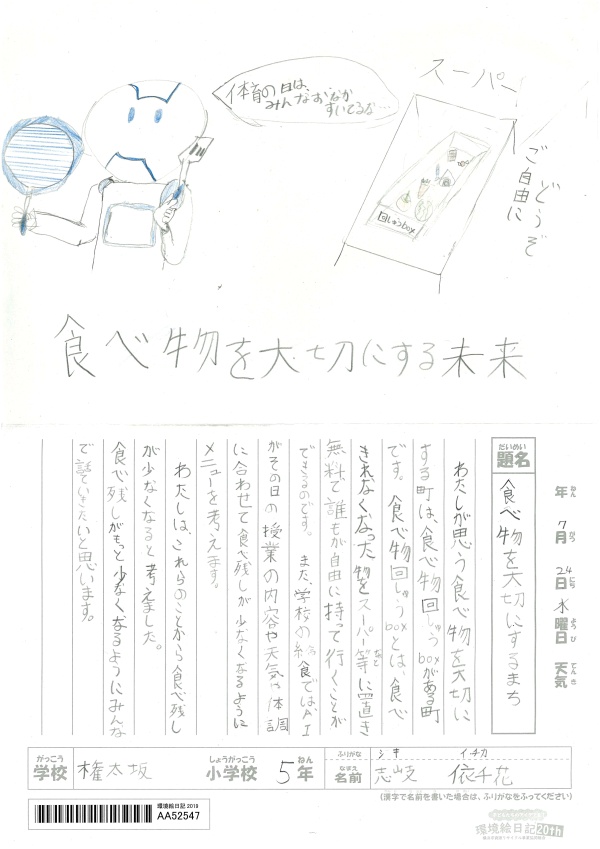 スーパー
体育の日は、
みんなおなか
すいてるな…
ご自由に
どうぞ
回しゅうbox
食べ物を大切にする未来
年 7月 24日 水曜日 天気
ねん がつ にち ようび てんき
だいめい
題名
食べ物を大切にするまち
わたしが思う食べ物を大切に
する町は、食べ物回しゅうboxがある町
です。食べ物回しゅうboxとは食べ
きれなくなった物をスーパー等に置き
無料で誰もが自由に持って行くことが
できるのです。また、学校の給食では、AI
がその日の授業の内容や天気や体調
に合わせて食べ残しが少なくなるように
メニューを考えます。
わたしは、これらのことから食べ残し
が少なくなると考えました。
食べ残しがもっと少なくなるようにみんな
で話していきたいと思います。
がっこう
学校
権太坂
しょうがっこう
小学校
5
ねん
年
ふりがな
シキ イチカ
なまえ
名前
志岐 依千花
(漢字で名前を書いた場合は、ふりがなをふってください)
環境絵日記 2019
AA52547
環境絵日記20th